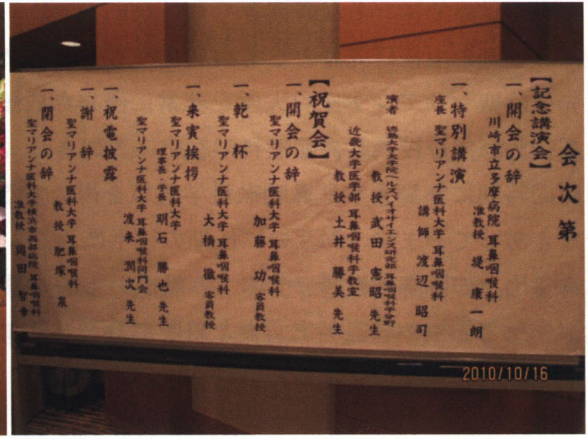 会次第
【記念講演会】
一、開会の辞
川崎市立多摩病院 耳鼻咽喉科
准教授 堤 康一朗
一、特別講演
座長 聖マリアンナ医科大学 耳鼻咽喉科
講師 渡辺 昭司
演者 徳島大学大学院ヘルスバイオサイエンス研究部 耳鼻咽喉科学分野
教授 武田 憲昭 先生
近畿大学医学部 耳鼻咽喉科学教室
教授 土井 勝美 先生
【祝賀会】
一、開会の辞
聖マリアンナ医科大学 耳鼻咽喉科
加藤 功 客員教授
一、乾杯
聖マリアンナ医科大学 耳鼻咽喉科
大橋 徹 客員教授
一、来賓挨拶
聖マリアンナ医科大学
理事長・学長 明石 勝也 先生
聖マリアンナ医科大学 耳鼻咽喉科同門会
渡来 潤次 先生
一、祝電披露
一、謝辞
聖マリアンナ医科大学 耳鼻咽喉科
教授 肥塚 泉
一、閉会の辞
聖マリアンナ医科大学横浜市西部病院 耳鼻咽喉科
准教授 岡田 智幸
2010/10/16